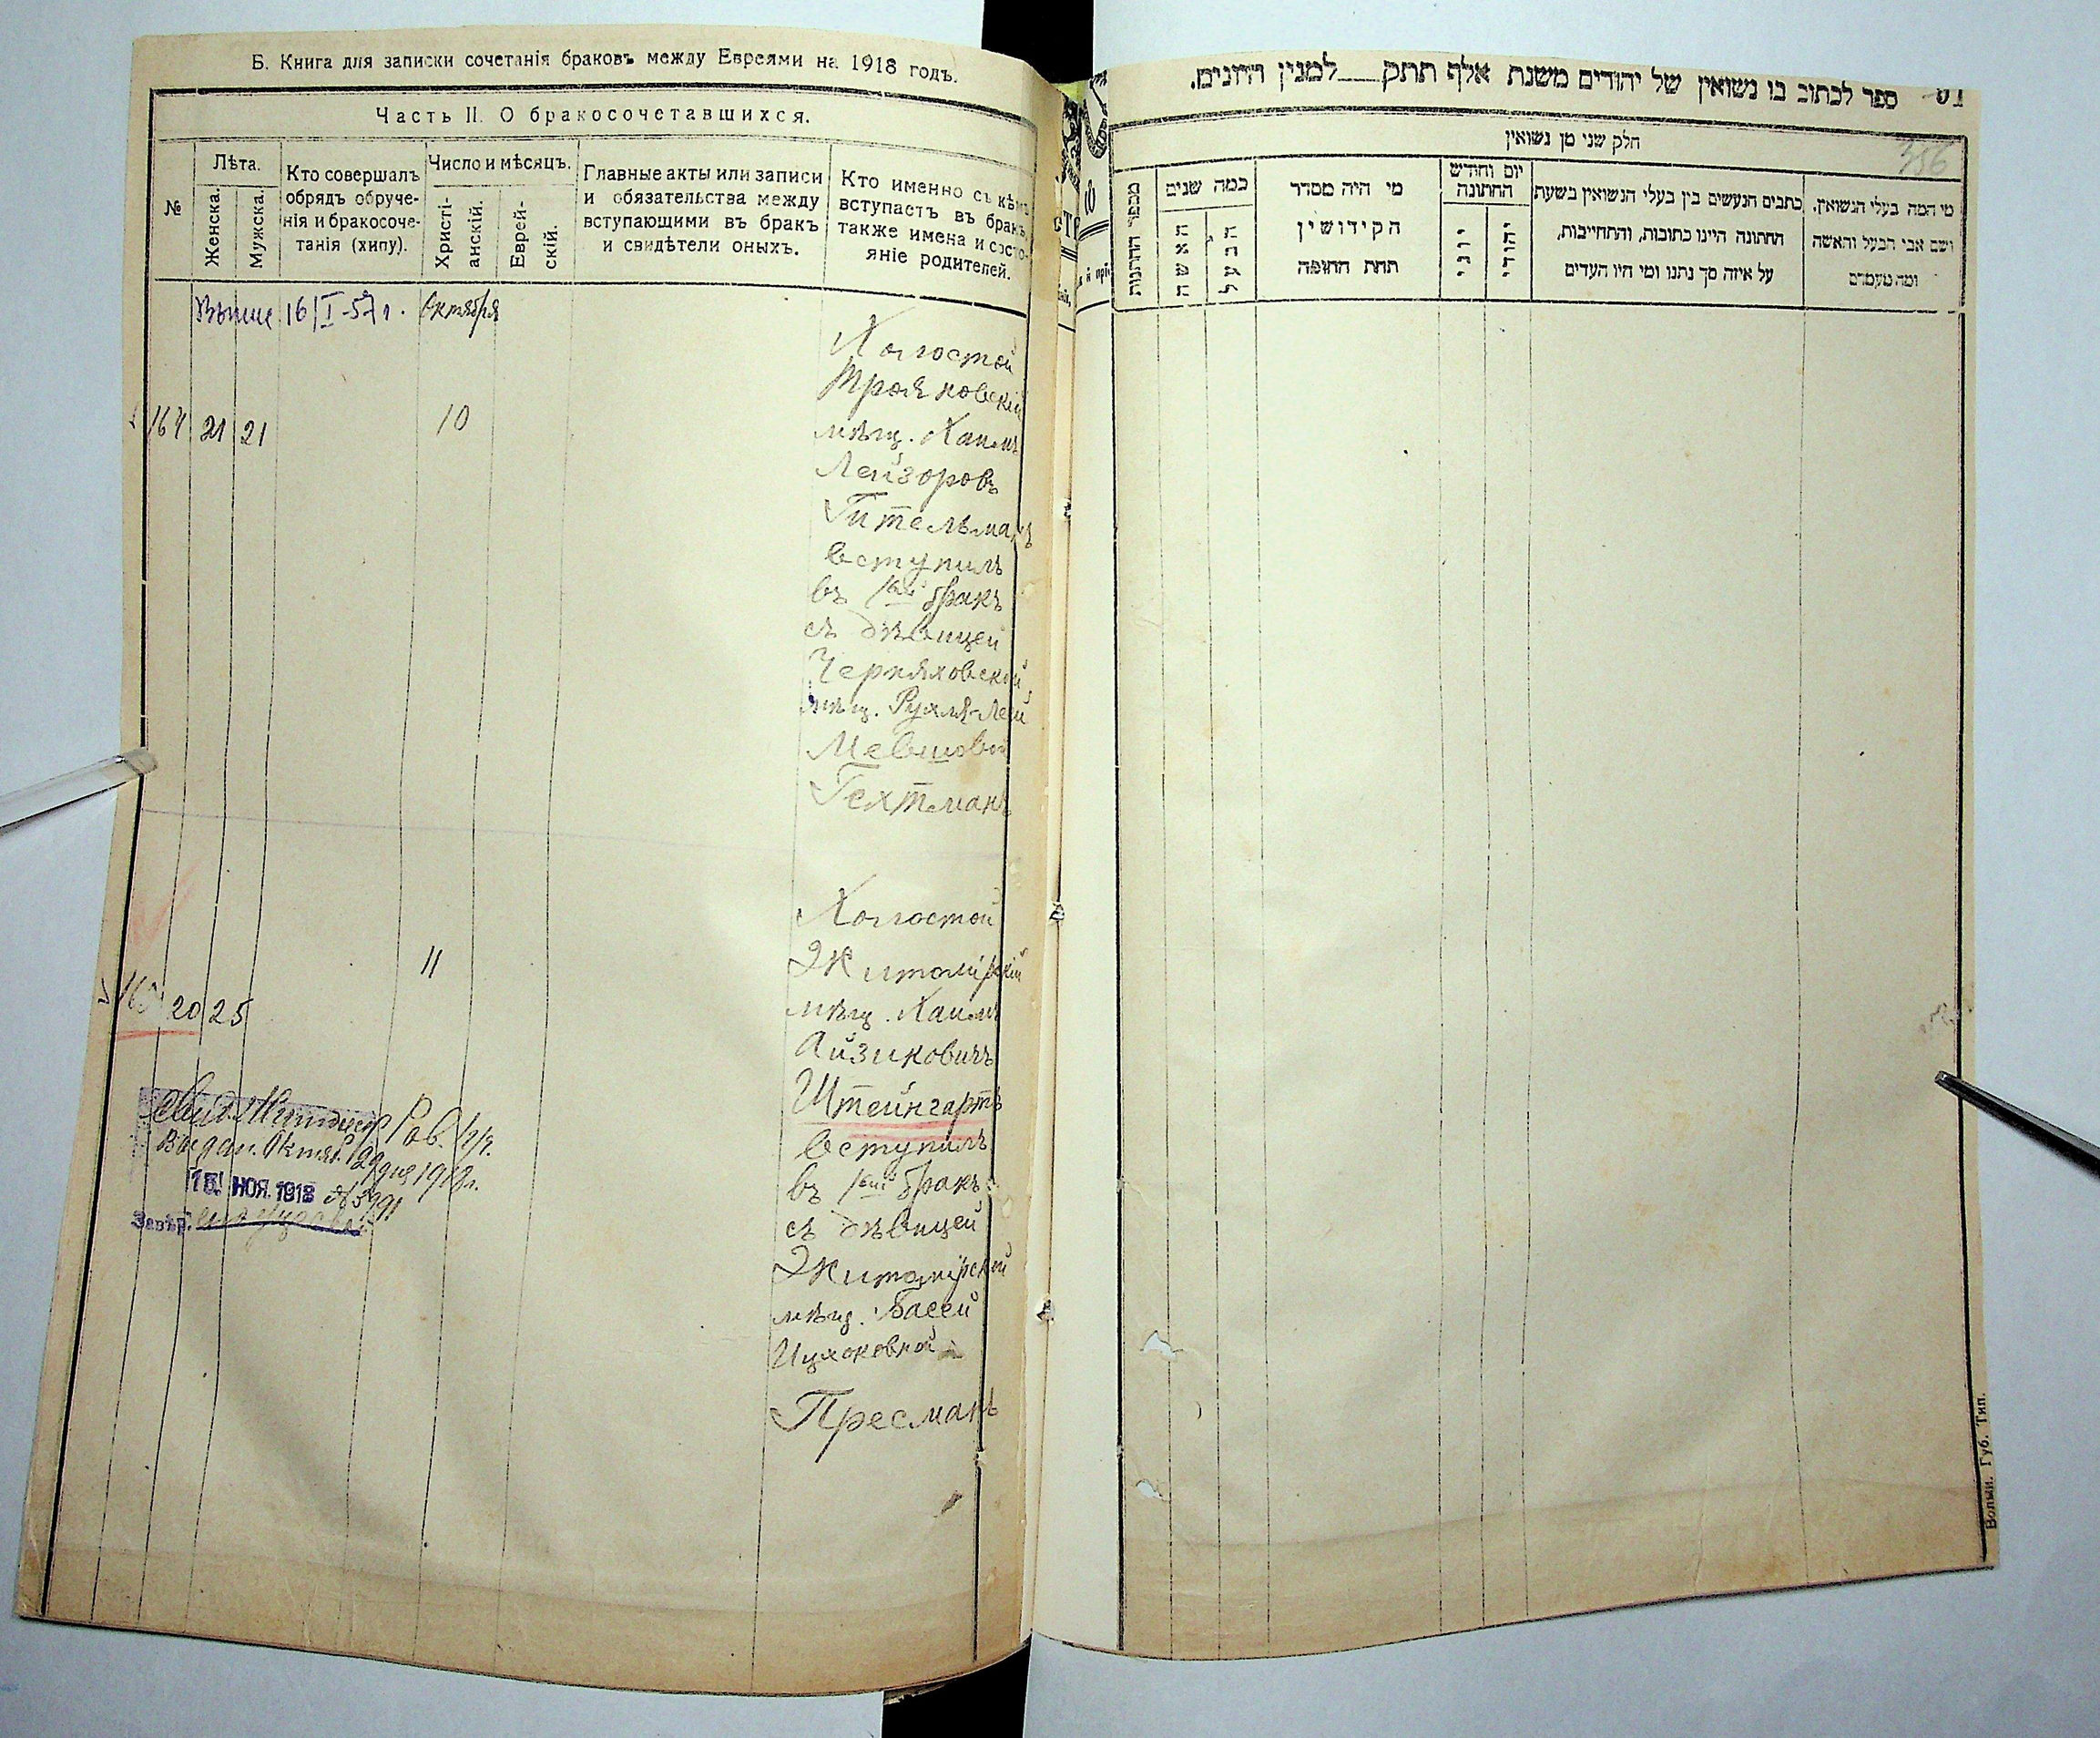 Б. Книга для записки сочетанія браковъ между Евреями на 1918 годъ.
Часть II. О бракосочетавшихся.
№
Лѣта.
Женска.
Мужска.
Кто совершалъ
обрядъ обруче-
нія и бракосоче-
танія (хипу).
Число и мѣсяцъ.
Христі-
анскій.
Еврей-
скій.
Главные акты или записи
и обязательства между
вступающими въ бракъ
и свидѣтели оныхъ.
Кто именно съ кѣмъ
вступаетъ въ бракъ
также имена и состо-
яніе родителей.
16/I-57 г. Октября
Холостой
Трояновскій
164 21 21 10 мѣщ. Хаимъ
Лейзоровъ
Гительманъ
вступилъ
въ 1ый бракъ
съ дѣвицей
Черняховской
мѣщ. Рухля-Леей
Мевшовой
Гехтманъ
Холостой
11 Житомірскій
20 25 мѣщ. Хаимъ
Айзиковичъ
Штейнгартъ
вступилъ
въ 1ый бракъ
съ дѣвицей
Житомірской
мѣщ. Басей
Ицхоковной
Пресманъ
Рав.
Октяб. 29 дня 1918 г.
15 НОЯ. 1918
Завѣр.
ספר לכתוב בו נשואין של יהודים משנת אלף תתק___למנין הרונים.
61
356
חלק שני מן נשואין
מספר החתונות
כמה שנים
האשה
הבעל
מי היה מסדר
הקידושין
תחת החופה
יום וחודש
החתונה
יוני
יהודי
כתבים הנעשים בין בעלי הנשואין בשעת
החתונה היינו כתובות, והתחייבות,
על איזה סך נתנו ומי היו העדים
מי המה בעלי הנשואין,
ושם אבי הבעל והאשה
ומה מעמדם
Волын. Губ. Тип.